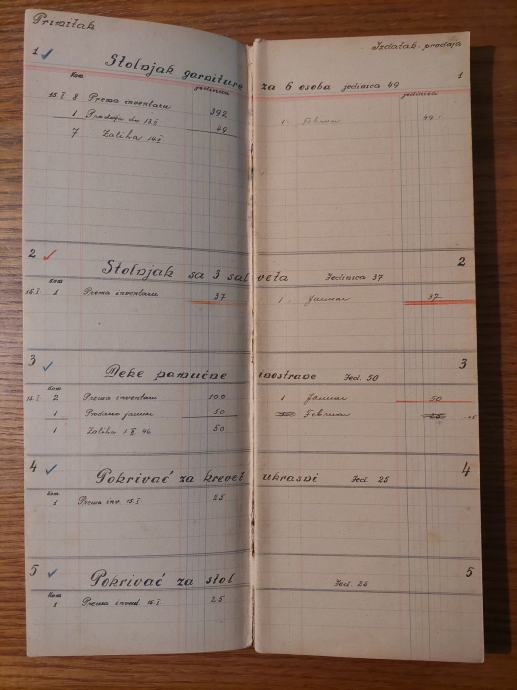 Primitak
Izdatak - prodaja
1 Stolnjak garniture za 6 osoba jedinica 49 1
Kom jedinica jedinica
15. I 8 Prema inventaru 392
1 Prodaja do 15. I 49 1 Februar 49
7 Zaliha
2 Stolnjak sa 3 salveta Jedinica 37 2
Kom
15. I 1 Prema inventaru 37 1 Januar 37
3 Deke pamučne inostrane Jed. 50 3
Kom
15. I 2 Prema inventaru 100 1 Januar 50
1 Prodano januar 50 Februar
1 Zaliha 1. II 46 50
4 Pokrivač za krevet ukrasni Jed. 25 4
Kom
1 Prema inv. 15. I 25
5 Pokrivač za stol Jed. 25 5
Kom
1 Prema invent. 15. I 25